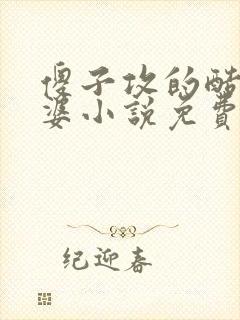 傻子攻的醋
婆小说免费
纪迎春